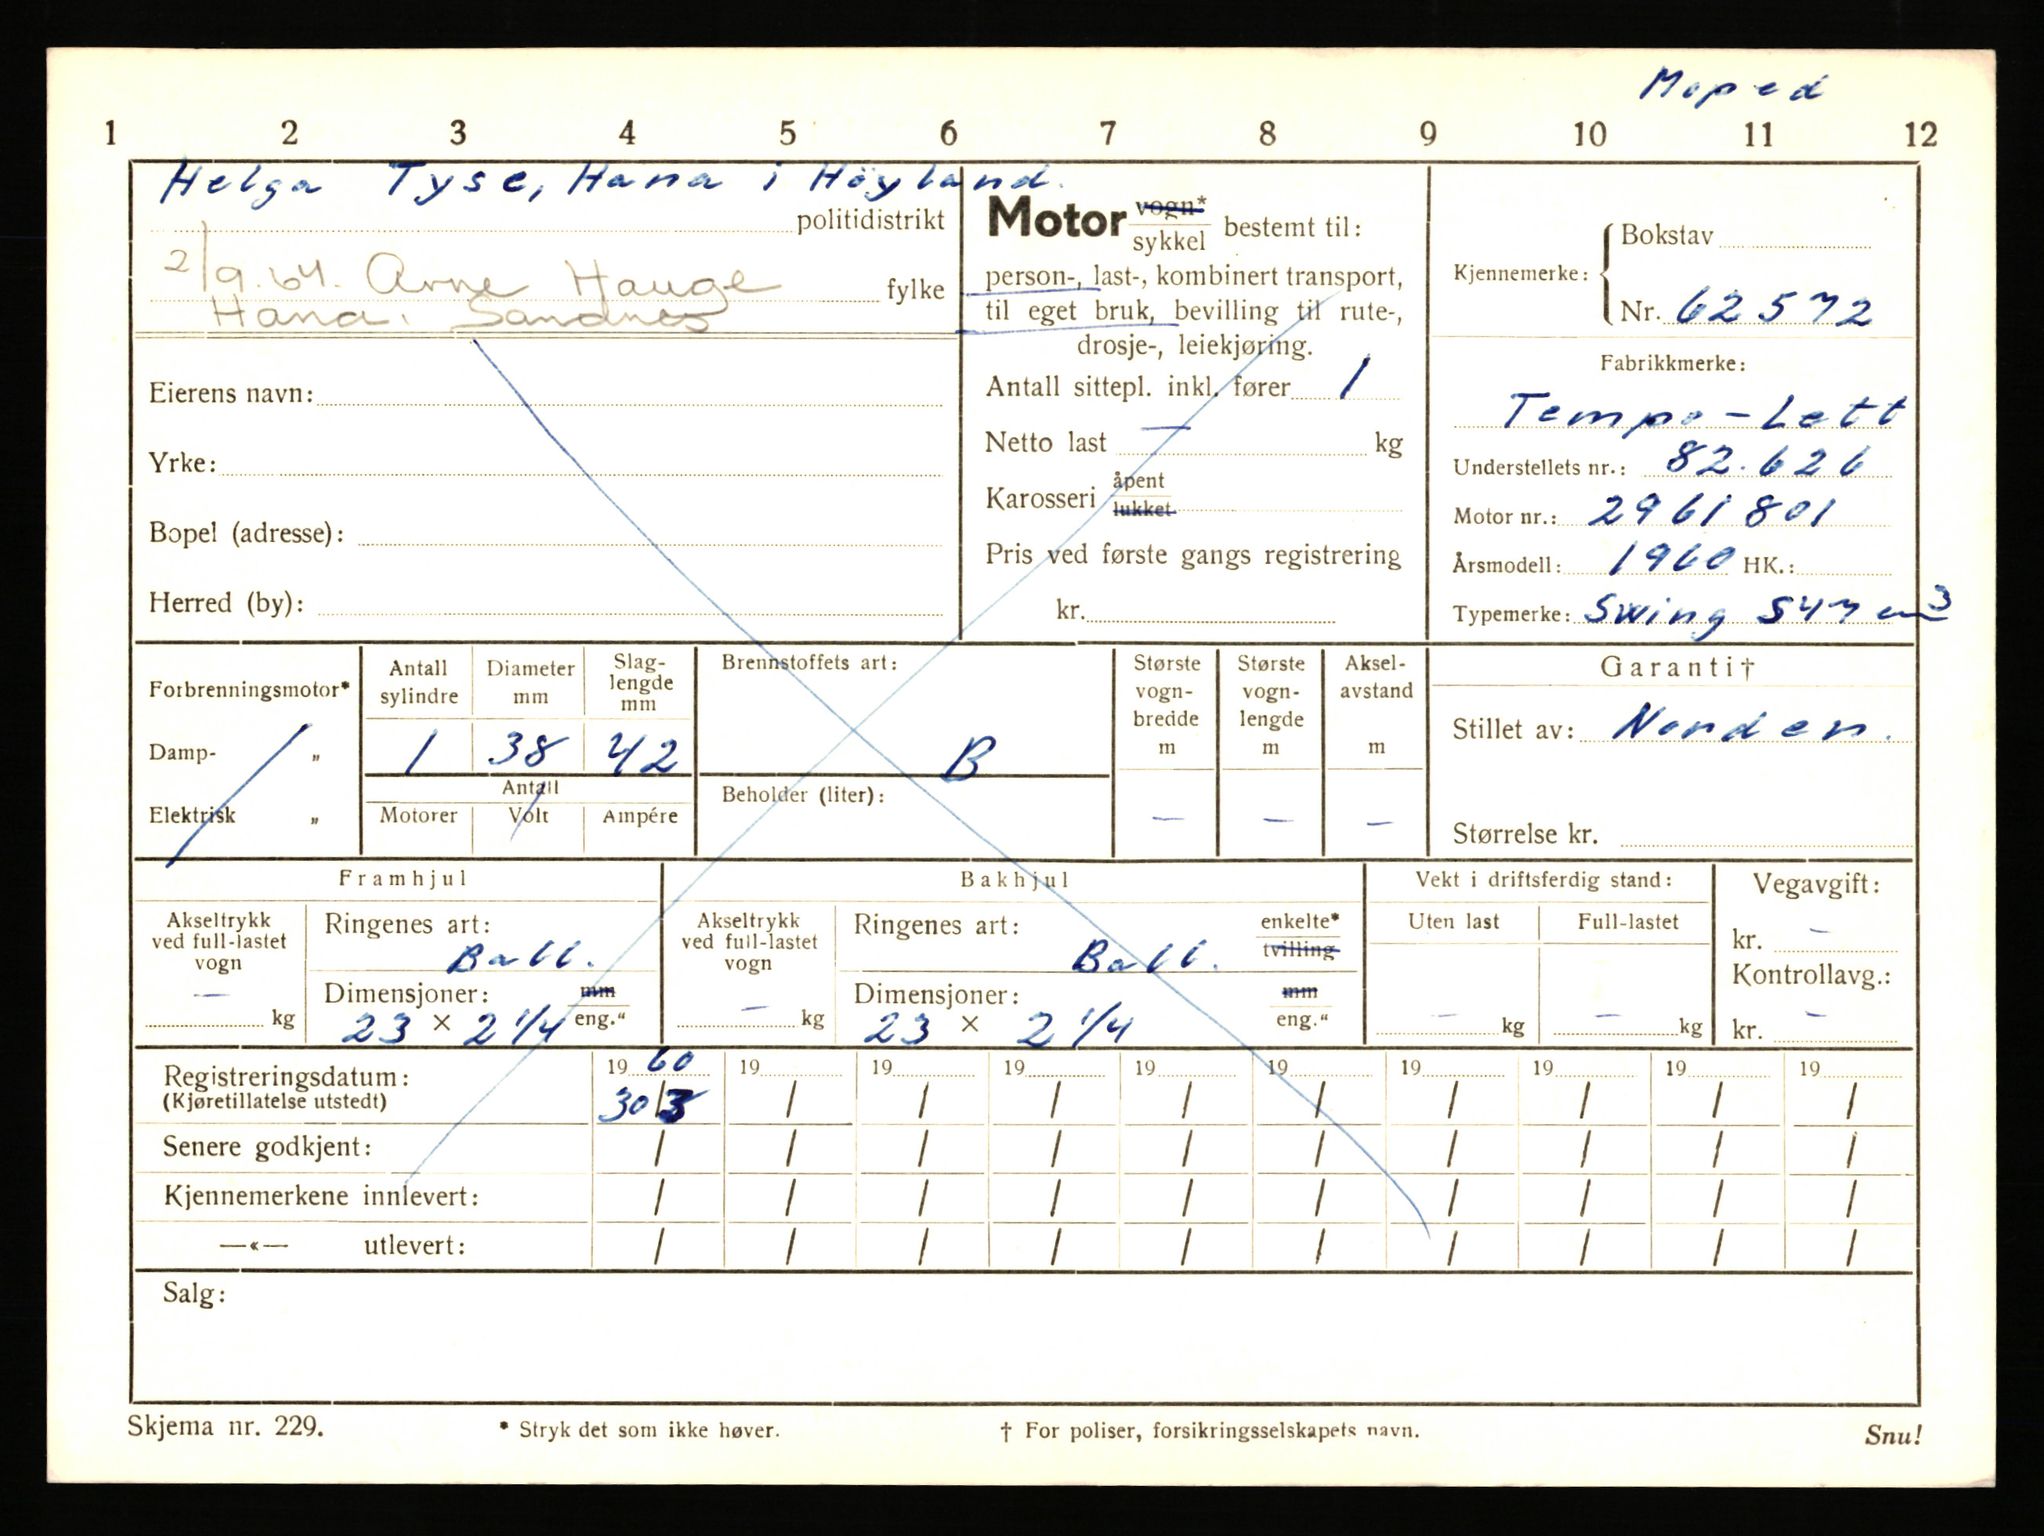 Moped
1 2 3 4 5 6 7 8 9 10 11 12
Helga Tyse, Hana i Høyland.
politidistrikt
2/9.64. Arne Hauge
fylke
Hana. Sandnes
Eierens navn:
Yrke:
Bopel (adresse):
Herred (by):
Motor vogn*
sykkel bestemt til:
person-, last-, kombinert transport,
til eget bruk, bevilling til rute-,
drosje-, leiekjøring.
Antall sittepl. inkl. fører 1
Netto last — kg
Karosseri åpent
lukket
Pris ved første gangs registrering
kr.
Kjennemerke: Bokstav
Nr. 62572
Fabrikkmerke:
Tempo-Lett
Understellets nr.: 82.626
Motor nr.: 2961801
Årsmodell: 1960 HK.:
Typemerke: Swing S 47 cm3
Forbrenningsmotor*
Damp- „
Elektrisk „
Antall sylindre
Diameter mm
Slaglengde mm
1 38 42
Antall
Motorer Volt Ampére
Brennstoffets art:
B
Beholder (liter):
Største vogn-bredde m
—
Største vogn-lengde m
—
Aksel-avstand m
—
Garanti†
Stillet av: Norden.
Størrelse kr.
Framhjul
Akseltrykk
ved full-lastet
vogn
— kg
Ringenes art:
Ball.
Dimensjoner: mm
23 × 2 1/4 eng.“
Bakhjul
Akseltrykk
ved full-lastet
vogn
— kg
Ringenes art: enkelte*
Ball. tvilling
Dimensjoner: mm
23 × 2 1/4 eng.“
Vekt i driftsferdig stand:
Uten last Full-lastet
— kg — kg
Vegavgift:
kr. —
Kontrollavg.:
kr. —
19 60 19 19 19 19 19 19 19 19 19
Registreringsdatum:
(Kjøretillatelse utstedt) 30/3 / / / / / / / / /
Senere godkjent: / / / / / / / / / /
Kjennemerkene innlevert: / / / / / / / / / /
—«— utlevert: / / / / / / / / / /
Salg:
Skjema nr. 229.
* Stryk det som ikke høver.
† For poliser, forsikringsselskapets navn.
Snu!